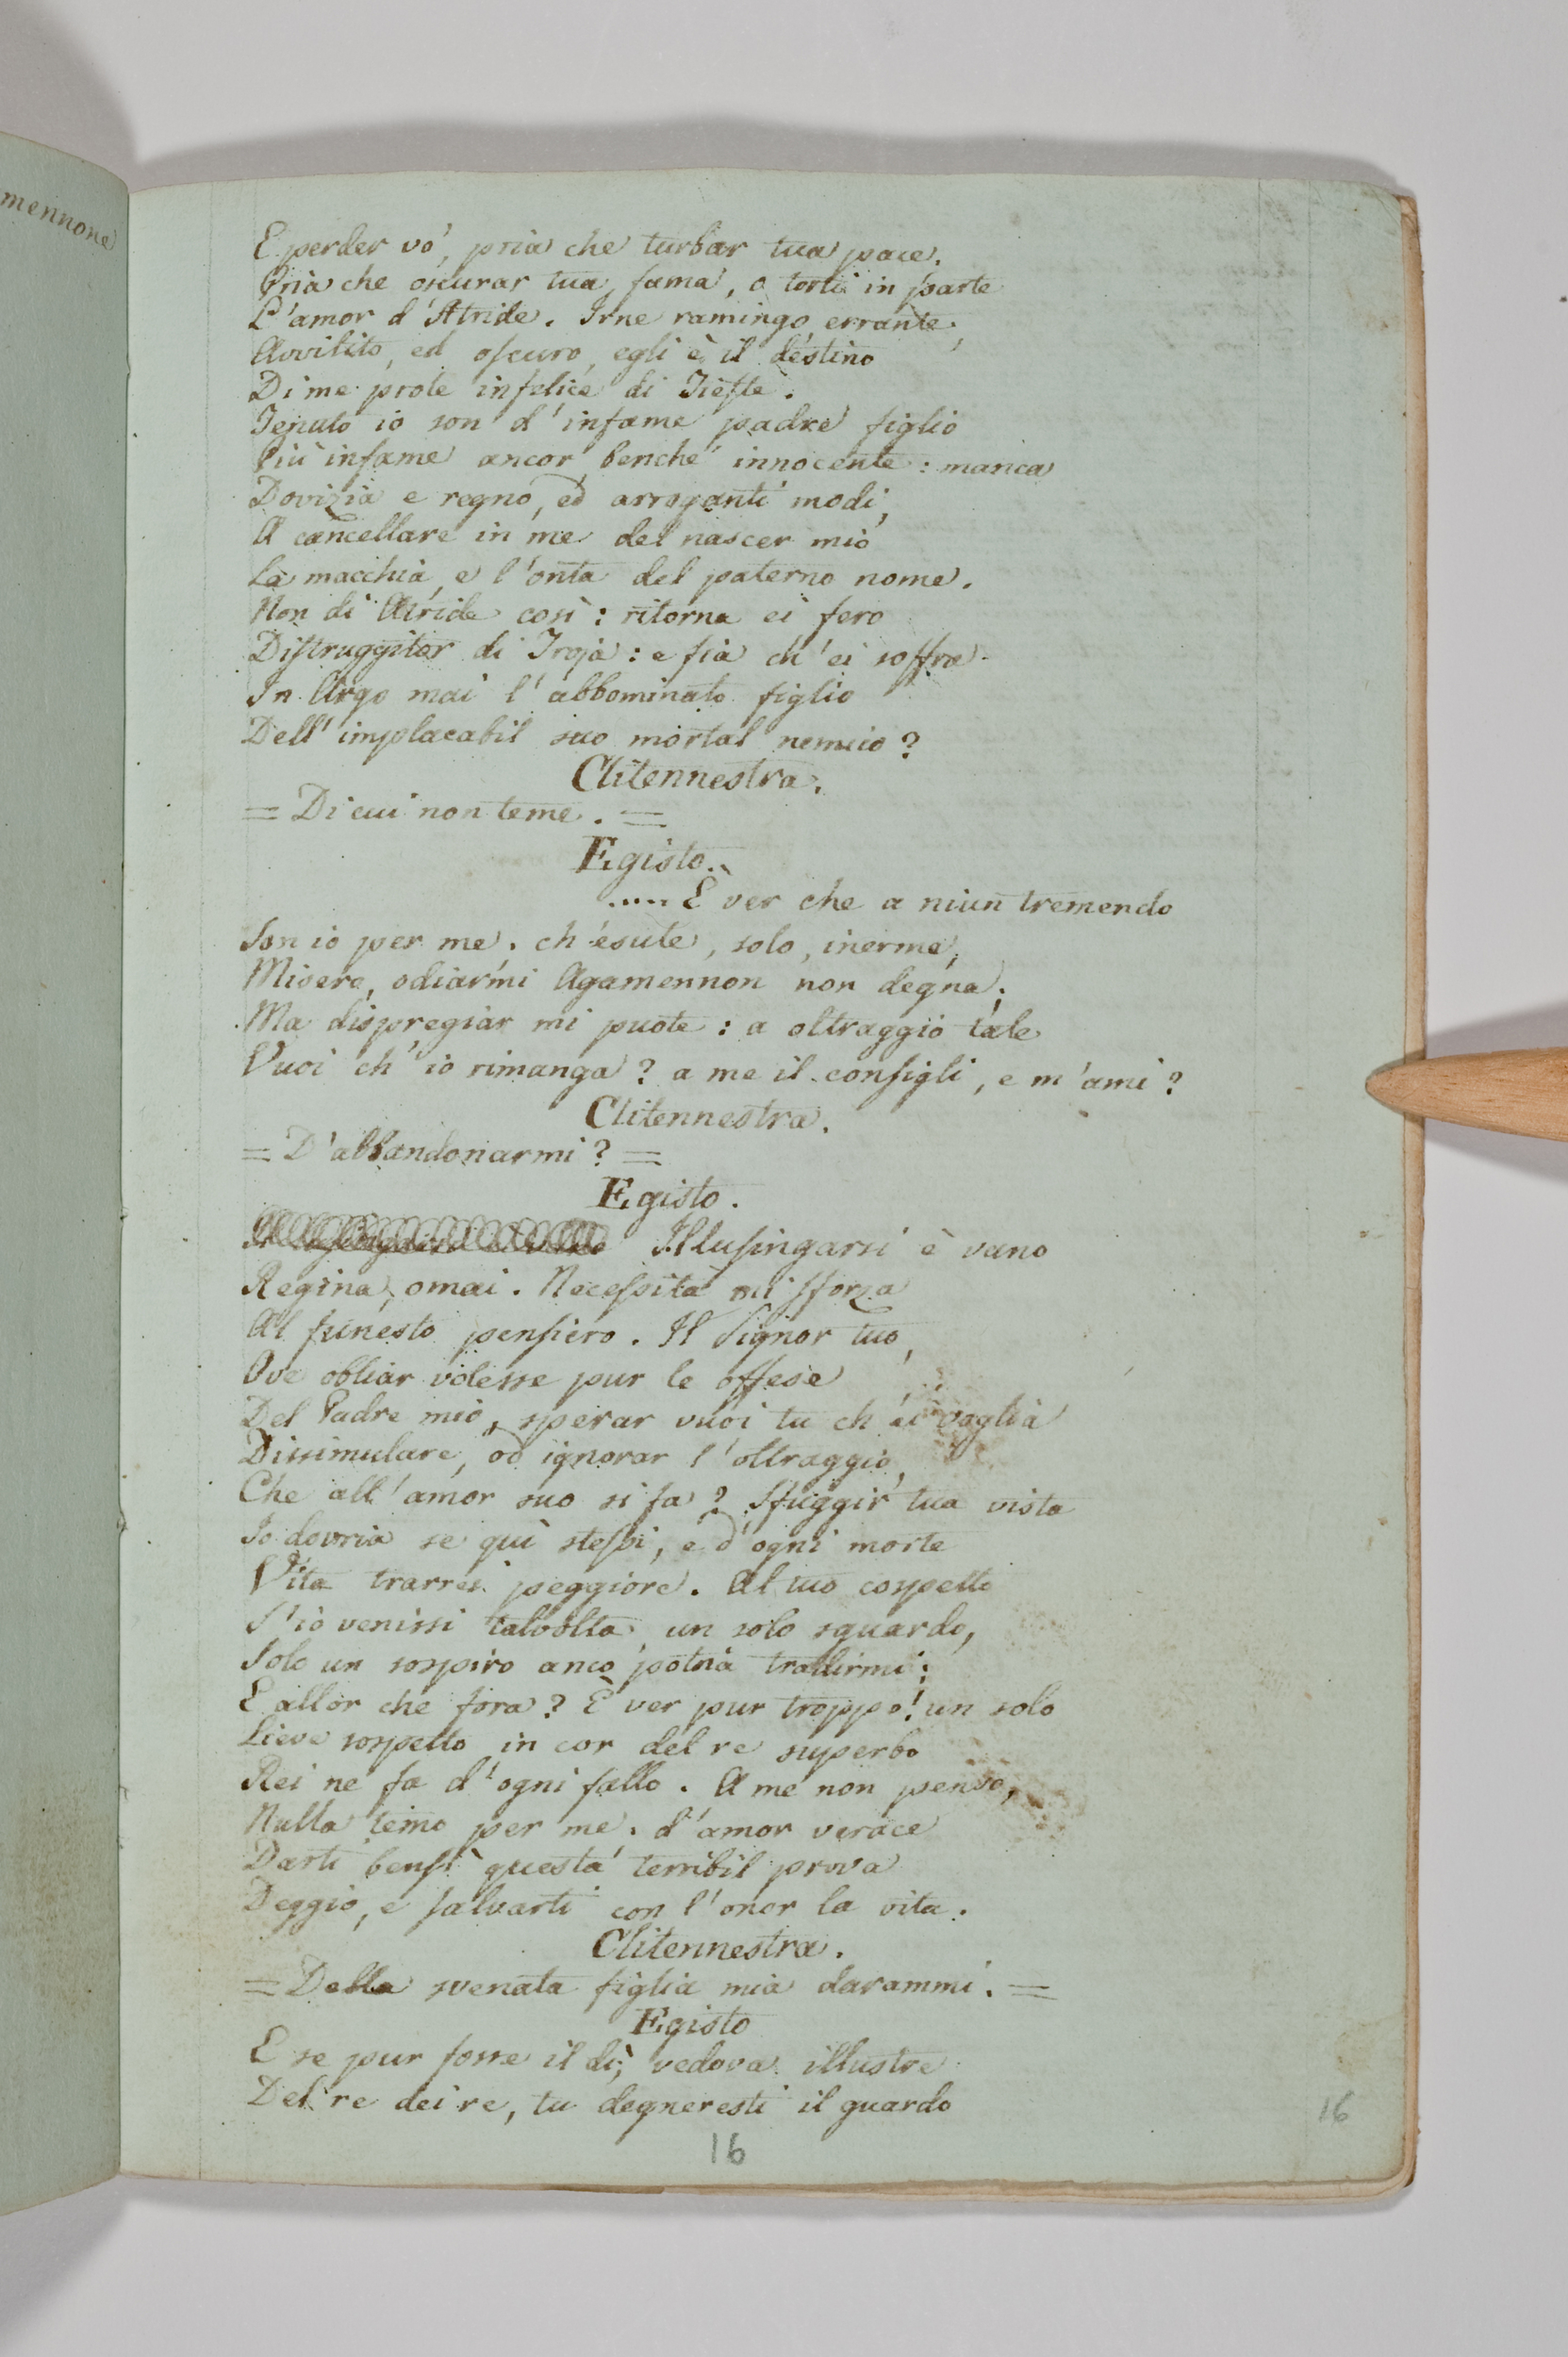 mennone
E perder vo', pria che turbar tua pace.
Pria che oscurar tua fama, o torti in parte
L'amor d'Atride. Irne ramingo, errante,
Avvilito, ed oscuro, egli è il destino
Di me prole infelice di Tieste.
Tenuto io son d'infame padre figlio
Più infame ancor, benchè innocente: manca
Dovizia e regno, ed arroganti modi,
A cancellare in me del nascer mio
La macchia, e l'onta del paterno nome.
Non di Atride così: ritorna ei fero
Distruggitor di Troja: e fia ch'ei soffra
In Argo mai l'abbominato figlio
Dell'implacabil suo mortal nemico?
Clitennestra.
= Di cui non teme. =
Egisto.
..... È ver che a niun tremendo
Son io per me. ch'esule, solo, inerme,
Misero, odiarmi Agamennon non degna;
Ma dispregiar mi puote: a oltraggio tale
Vuoi ch'io rimanga? a me il consigli, e m'ami?
Clitennestra.
= D'abbandonarmi? =
Egisto.
Illusingarsi è vano
Regina, omai. Necessità mi sforza
Al funesto pensiero. Il Signor tuo,
Ove obliar volesse pur le offese
Del Padre mio, sperar vuoi tu ch'ei voglia
Dissimulare, od ignorar l'oltraggio,
Che all'amor suo si fa? Sfuggir tua vista
Io dovria se quì stessi, e d'ogni morte
Vita trarrei peggiore. Al tuo cospetto
S'io venissi talvolta, un solo sguardo,
Solo un sospiro anco potria tradirmi:
E allor che fora? È ver pur troppo! un solo
Lieve sospetto in cor del re superbo
Rei ne fa d'ogni fallo. A me non penso,
Nulla temo per me, d'amor verace
Darti bensì questa terribil prova
Deggio, e salvarti con l'onor la vita.
Clitennestra.
= Della svenata figlia mia darammi. =
Egisto
E se pur fosse il dì, vedova illustre
Del re dei re, tu degneresti il guardo
16
16